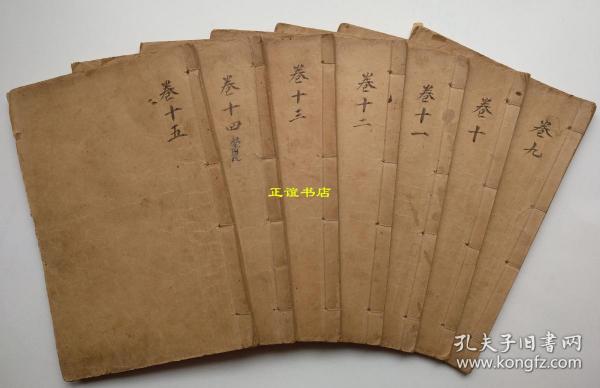 卷十五
卷十四
卷十三
卷十二
卷十一
卷十
卷九
正谊书店
孔夫子旧书网
www.kongfz.com